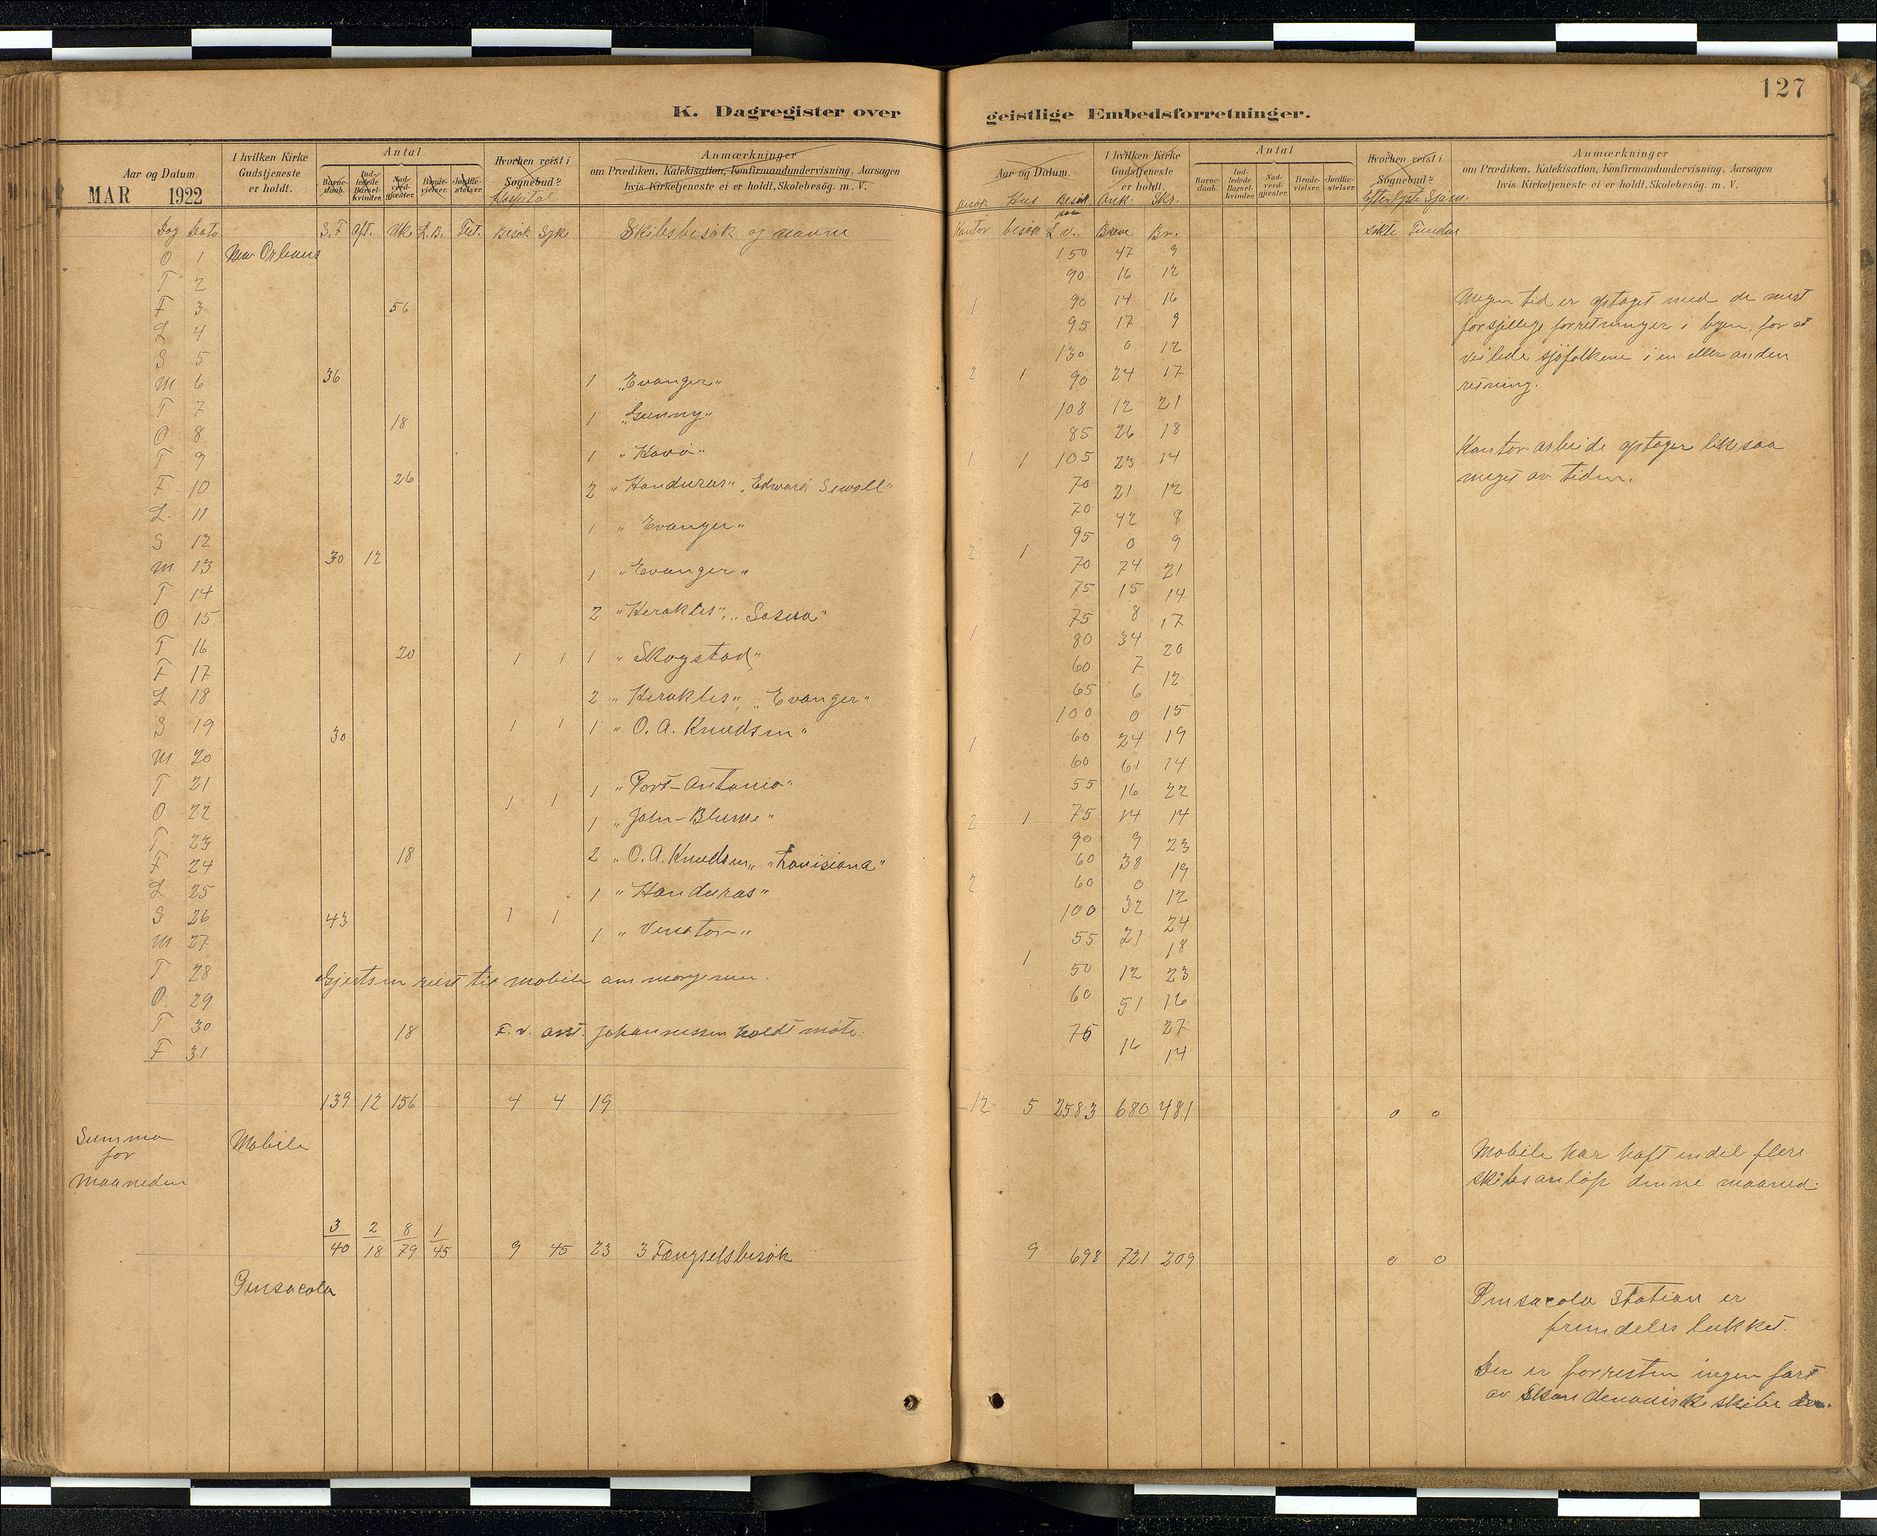 127
K. Dagregister over geistlige Embedsforretninger.
Aar og Datum.
MAR 1922
I hvilken Kirke Gudstjeneste er holdt.
Antal
Barnedaab. Indledede Barselkvinder. Nadverdgjæster. Brudevielser. Jordfæstelser.
Hvorhen reist i Sognebud?
Hospital
Anmærkninger
om Prædiken, Katekisation, Konfirmandundervisning. Aarsagen
hvis Kirketjeneste ei er holdt. Skolebesøg. m. V.
Dag Dato S.F. Aft. Uke L.B. Fest. Besøk Syke Skibsbesøk og navne
O 1 New Orleans
T 2
F 3 56
L 4
S 5
M 6 36 1 "Evanger"
T 7
O 8 18 1 "Gunny"
T 9 1 "Havö"
F 10 26 2 "Honduras" "Edward Sewall"
L 11
S 12 1 "Evanger"
M 13 30 12 1 "Evanger"
T 14
O 15 2 "Herakles", "Sosua"
T 16 20 1 1 1 "Skogstad"
F 17
L 18 2 "Herakles", "Evanger"
S 19 30 1 1 1 "O. A. Knudsen"
M 20
T 21 1 "Port-Antonio"
O 22 1 1 1 "John-Blume"
T 23
F 24 18 2 "O. A. Knudsen" "Louisiana"
L 25 1 "Honduras"
S 26 43 1 1
M 27 1 "Venator"
T 28 Gjertsen reist til Mobile om morgenen.
O 29
T 30 18 F. v. asst. Johannessen holdt møte.
F 31
139 12 156 4 4 19
Summa
for
Maaneden
Mobile
3/40 2/18 8/79 1/45 9 45 23 3 Fængselsbesøk
Pensacola
Aar og Datum.
I hvilken Kirke Gudstjeneste er holdt.
Antal
Barnedaab. Indledede Barselkvinder. Nadverdgjæster. Brudevielser. Jordfæstelser.
Hvorhen reist i Sognebud?
Anmærkninger
om Prædiken, Katekisation, Konfirmandundervisning. Aarsagen
hvis Kirketjeneste ei er holdt. Skolebesøg. m. V.
Besøk Hus Besøk Ank. Skr. Efterlyste Sjöm.
Kontor besøk L.v. Breve Br. søkte Fundne
150 47 9
90 16 12
1 90 14 16
95 17 9
130 0 12
2 1 90 24 17
108 12 21
85 26 18
1 1 105 23 14
70 21 12
70 42 8
95 0 9
2 1 70 74 21
75 15 14
75 8 17
1 80 34 20
60 7 12
65 6
100 0 15
1 60 24 19
60 61 14
55 16 22
2 1 75 14 14
90 9 23
60 38 19
2 60 0 12
100 32 24
55 21 18
1 50 12 23
60 51 16
75 27
16 14
12 5 2583 680 481 0 0
9 698 721 209 0 0
Megen tid er optaget med de mest
forsjellige forretninger i byen, for at
veilede sjöfolkene i en eller anden
retning.
Kontorarbeide optager likesaa
meget av tiden.
Mobile har haft endel flere
skibsanlöp denne maaned.
Pensacola Station er
fremdeles lukket.
Der er forresten ingen fart
av Skandenaviske skibe der.